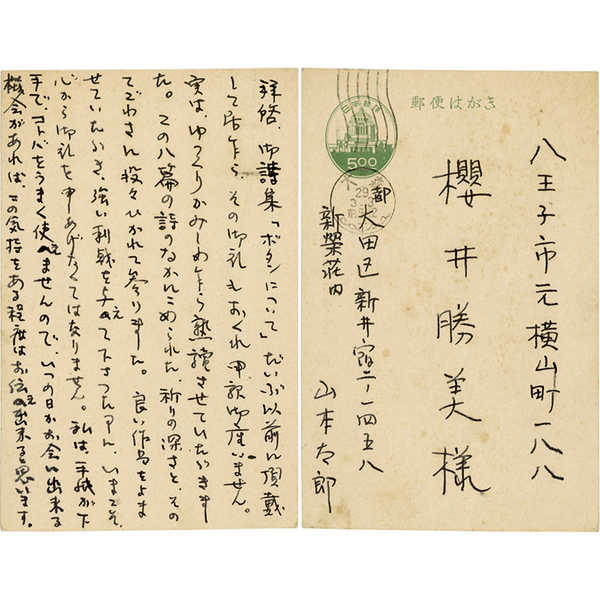 拝啓、御詩集「ボタンについて」だいぶ以前に頂戴
して居乍ら、その御礼もおくれ申訳御座いません。
実は、ゆっくりかみしめ乍ら熟讀させていたゞきまし
た。この八篇の詩のなかにこめられた、祈りの深さと、その
てごわさに段々ひかれて参りました。良い作品をよま
せていたゞき、強い刺戟を与えて下さつた
心から御礼を申しあげなくてはなりません。私は、手紙が下
手で、コトバをうまく使えませんので、いつの日かお会い出来る
機会があれば、この気持をある程度はお伝え出来ると思います。
郵便はがき
日本郵便
500
29
3
八王子市元横山町一八八
櫻井勝美様
都 大田区新井宿二ノ一四五八
新榮荘内
山本太郎